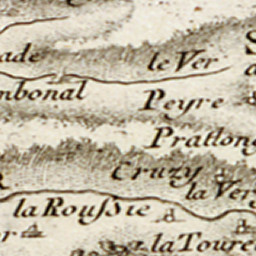 ade
le Ver
mbonal
Peyre
Pratlong
Cruzy
la Ver
la Roussie
la Toure